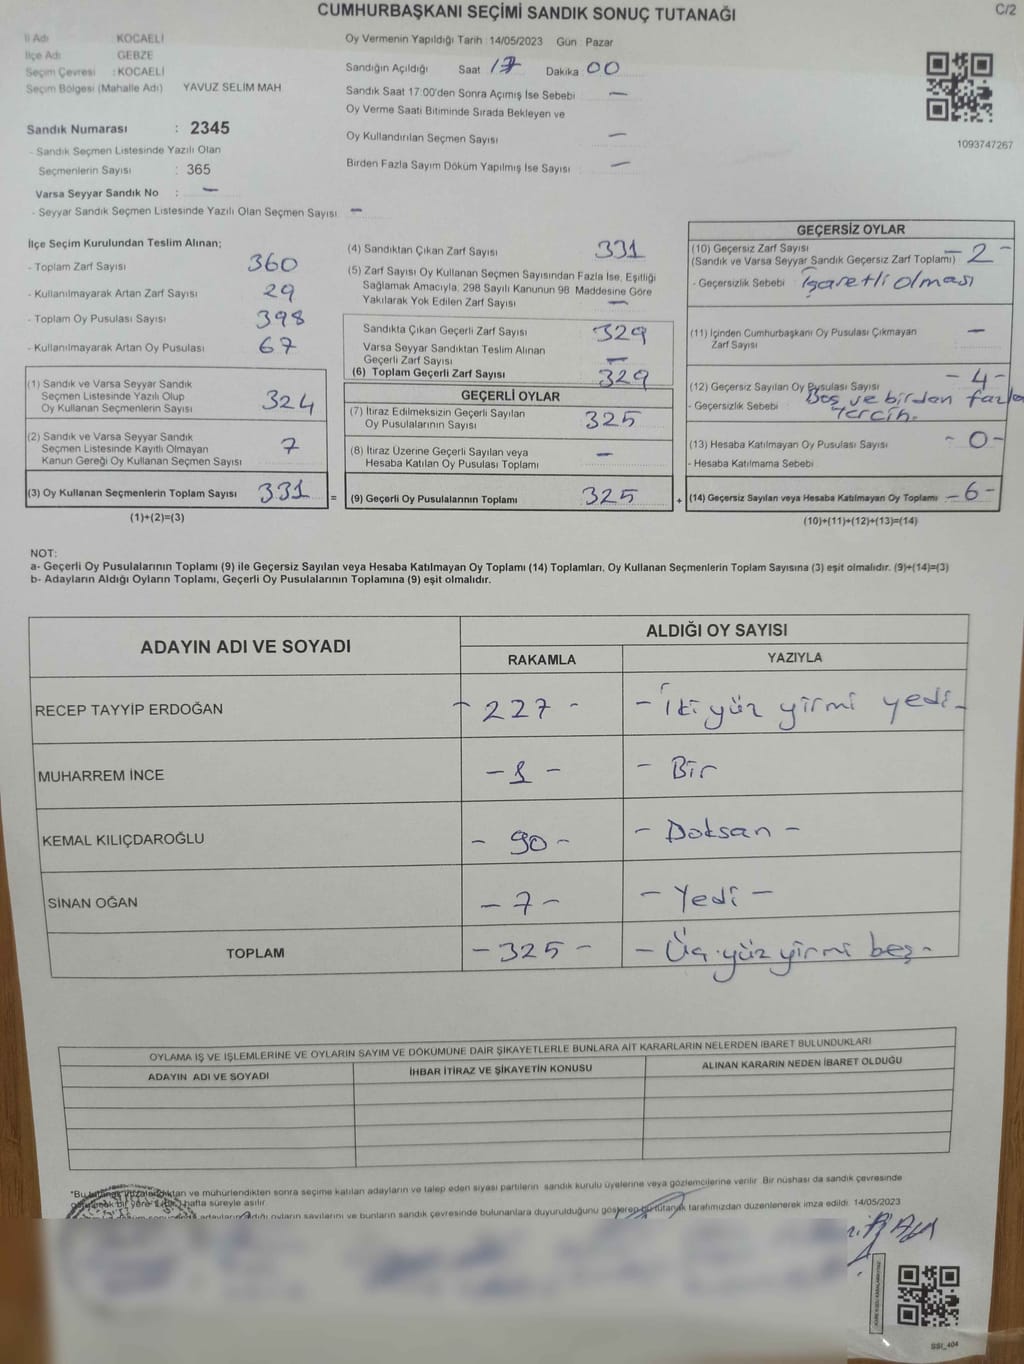 CUMHURBAŞKANI SEÇİMİ SANDIK SONUÇ TUTANAĞI
C/2
İl Adı KOCAELİ
İlçe Adı GEBZE
Seçim Çevresi : KOCAELİ
Seçim Bölgesi (Mahalle Adı) YAVUZ SELİM MAH
Sandık Numarası : 2345
- Sandık Seçmen Listesinde Yazılı Olan
Seçmenlerin Sayısı : 365
Varsa Seyyar Sandık No : —
- Seyyar Sandık Seçmen Listesinde Yazılı Olan Seçmen Sayısı —
Oy Vermenin Yapıldığı Tarih : 14/05/2023 Gün Pazar
Sandığın Açıldığı Saat 17 Dakika 00
Sandık Saat 17:00'den Sonra Açımış İse Sebebi —
Oy Verme Saati Bitiminde Sırada Bekleyen ve
Oy Kullandırılan Seçmen Sayısı —
Birden Fazla Sayım Döküm Yapılmış İse Sayısı —
1093747267
İlçe Seçim Kurulundan Teslim Alınan;
- Toplam Zarf Sayısı 360
- Kullanılmayarak Artan Zarf Sayısı 29
- Toplam Oy Pusulası Sayısı 398
- Kullanılmayarak Artan Oy Pusulası 67
(1) Sandık ve Varsa Seyyar Sandık
Seçmen Listesinde Yazılı Olup
Oy Kullanan Seçmenlerin Sayısı 324
(2) Sandık ve Varsa Seyyar Sandık
Seçmen Listesinde Kayıtlı Olmayan
Kanun Gereği Oy Kullanan Seçmen Sayısı 7
(3) Oy Kullanan Seçmenlerin Toplam Sayısı 331 =
(1)+(2)=(3)
(4) Sandıktan Çıkan Zarf Sayısı 331
(5) Zarf Sayısı Oy Kullanan Seçmen Sayısından Fazla İse, Eşitliği
Sağlamak Amacıyla, 298 Sayılı Kanunun 98 Maddesine Göre
Yakılarak Yok Edilen Zarf Sayısı —
Sandıkta Çıkan Geçerli Zarf Sayısı 329
Varsa Seyyar Sandıktan Teslim Alınan
Geçerli Zarf Sayısı —
(6) Toplam Geçerli Zarf Sayısı 329
GEÇERLİ OYLAR
(7) İtiraz Edilmeksizin Geçerli Sayılan
Oy Pusulalarının Sayısı 325
(8) İtiraz Üzerine Geçerli Sayılan veya
Hesaba Katılan Oy Pusulası Toplamı —
(9) Geçerli Oy Pusulalarının Toplamı 325 +
GEÇERSİZ OYLAR
(10) Geçersiz Zarf Sayısı
(Sandık ve Varsa Seyyar Sandık Geçersiz Zarf Toplamı) - 2 -
- Geçersizlik Sebebi İşaretli olması
(11) İçinden Cumhurbaşkanı Oy Pusulası Çıkmayan
Zarf Sayısı —
(12) Geçersiz Sayılan Oy Pusulası Sayısı - 4 -
- Geçersizlik Sebebi Boş ve birden fazla
tercih.
(13) Hesaba Katılmayan Oy Pusulası Sayısı - 0 -
- Hesaba Katılmama Sebebi
(14) Geçersiz Sayılan veya Hesaba Katılmayan Oy Toplamı - 6 -
(10)+(11)+(12)+(13)=(14)
NOT:
a- Geçerli Oy Pusulalarının Toplamı (9) ile Geçersiz Sayılan veya Hesaba Katılmayan Oy Toplamı (14) Toplamları, Oy Kullanan Seçmenlerin Toplam Sayısına (3) eşit olmalıdır. (9)+(14)=(3)
b- Adayların Aldığı Oyların Toplamı, Geçerli Oy Pusulalarının Toplamına (9) eşit olmalıdır.
ADAYIN ADI VE SOYADI ALDIĞI OY SAYISI
RAKAMLA YAZIYLA
RECEP TAYYİP ERDOĞAN - 227 - - İki yüz yirmi yedi -
MUHARREM İNCE - 1 - - Bir
KEMAL KILIÇDAROĞLU - 90 - - Doksan -
SİNAN OĞAN - 7 - - Yedi -
TOPLAM - 325 - - Üç yüz yirmi beş -
OYLAMA İŞ VE İŞLEMLERİNE VE OYLARIN SAYIM VE DÖKÜMÜNE DAİR ŞİKAYETLERLE BUNLARA AİT KARARLARIN NELERDEN İBARET BULUNDUKLARI
ADAYIN ADI VE SOYADI İHBAR İTİRAZ VE ŞİKAYETİN KONUSU ALINAN KARARIN NEDEN İBARET OLDUĞU
*Bu tutanak imzalandıktan ve mühürlendikten sonra seçime katılan adayların ve talep eden siyasi partilerin sandık kurulu üyelerine veya gözlemcilerine verilir. Bir nüshası da sandık çevresinde
bir yere 1 (bir) hafta süreyle asılır.
oyların sayılarını ve bunların sandık çevresinde bulunanlara duyurulduğunu gösteren bu tutanak tarafımızdan düzenlenerek imza edildi. 14/05/2023
SSI_404